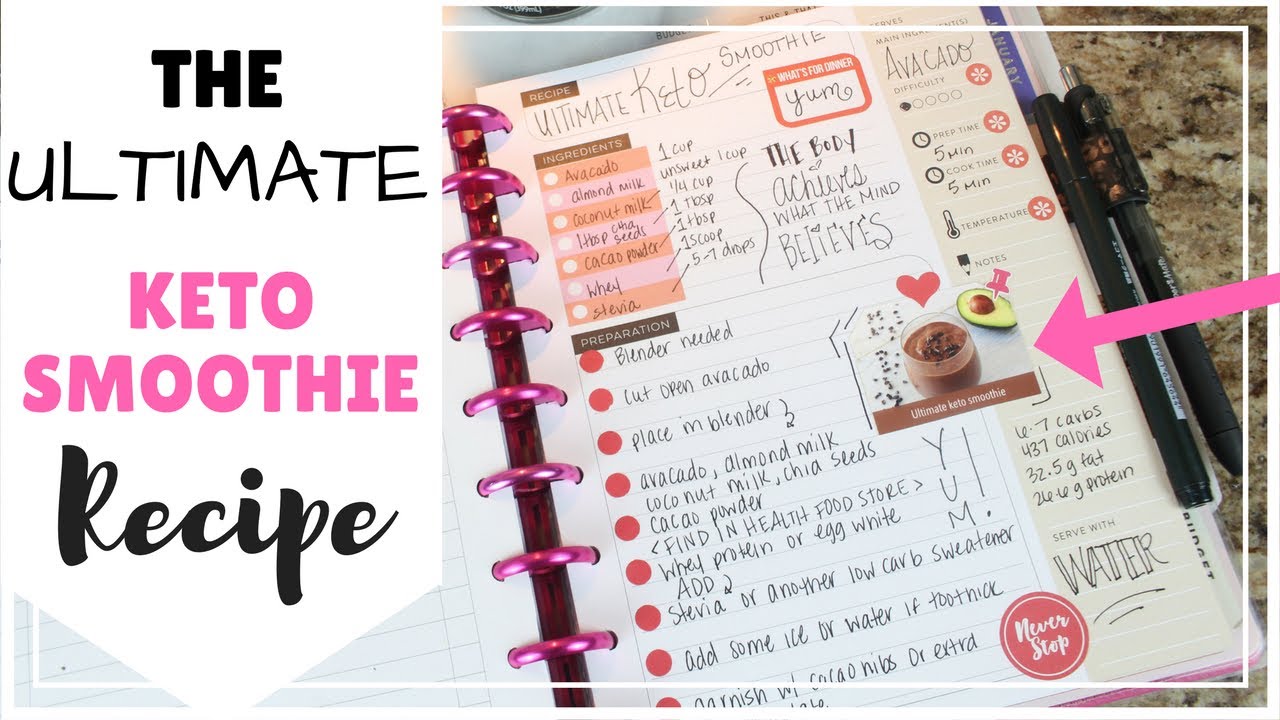 THE
ULTIMATE
KETO
SMOOTHIE
Recipe
THIS & THAT
RECIPE
ULTIMATE Keto SMOOTHIE
WHAT'S FOR DINNER
yum
INGREDIENTS
Avacado 1 cup
almond milk unsweet 1 cup
coconut milk 1/4 cup
1 tbsp chia seeds 1 tbsp
cacao powder 1 tbsp
whey 1 scoop
stevia 5-7 drops
THE BODY
achieves
WHAT THE MIND
BELIEVES
PREPARATION
Blender needed
cut open avacado
place in blender
avacado, almond milk
coconut milk, chia seeds
cacao powder
< FIND IN HEALTH FOOD STORE >
whey protein or egg white
ADD
stevia or another low carb sweatener
add some ice or water if too thick
garnish w/ cacao nibs or extra
YUM.
Ultimate keto smoothie
SERVES
MAIN INGREDIENT(S)
AVACADO
DIFFICULTY
PREP TIME
5 MIN
COOK TIME
5 MIN
TEMPERATURE
NOTES
6.7 carbs
437 calories
32.5 g fat
26.6 g protein
SERVE WITH
WATER
Never
Stop
JANUARY
BUDGET